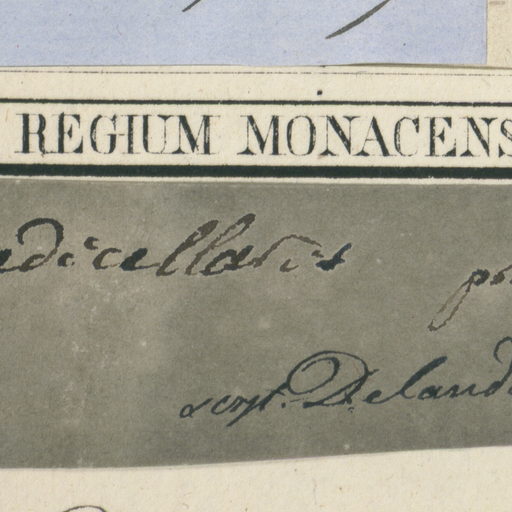 REGIUM MONACENS
edicellaris
scrps. Deland